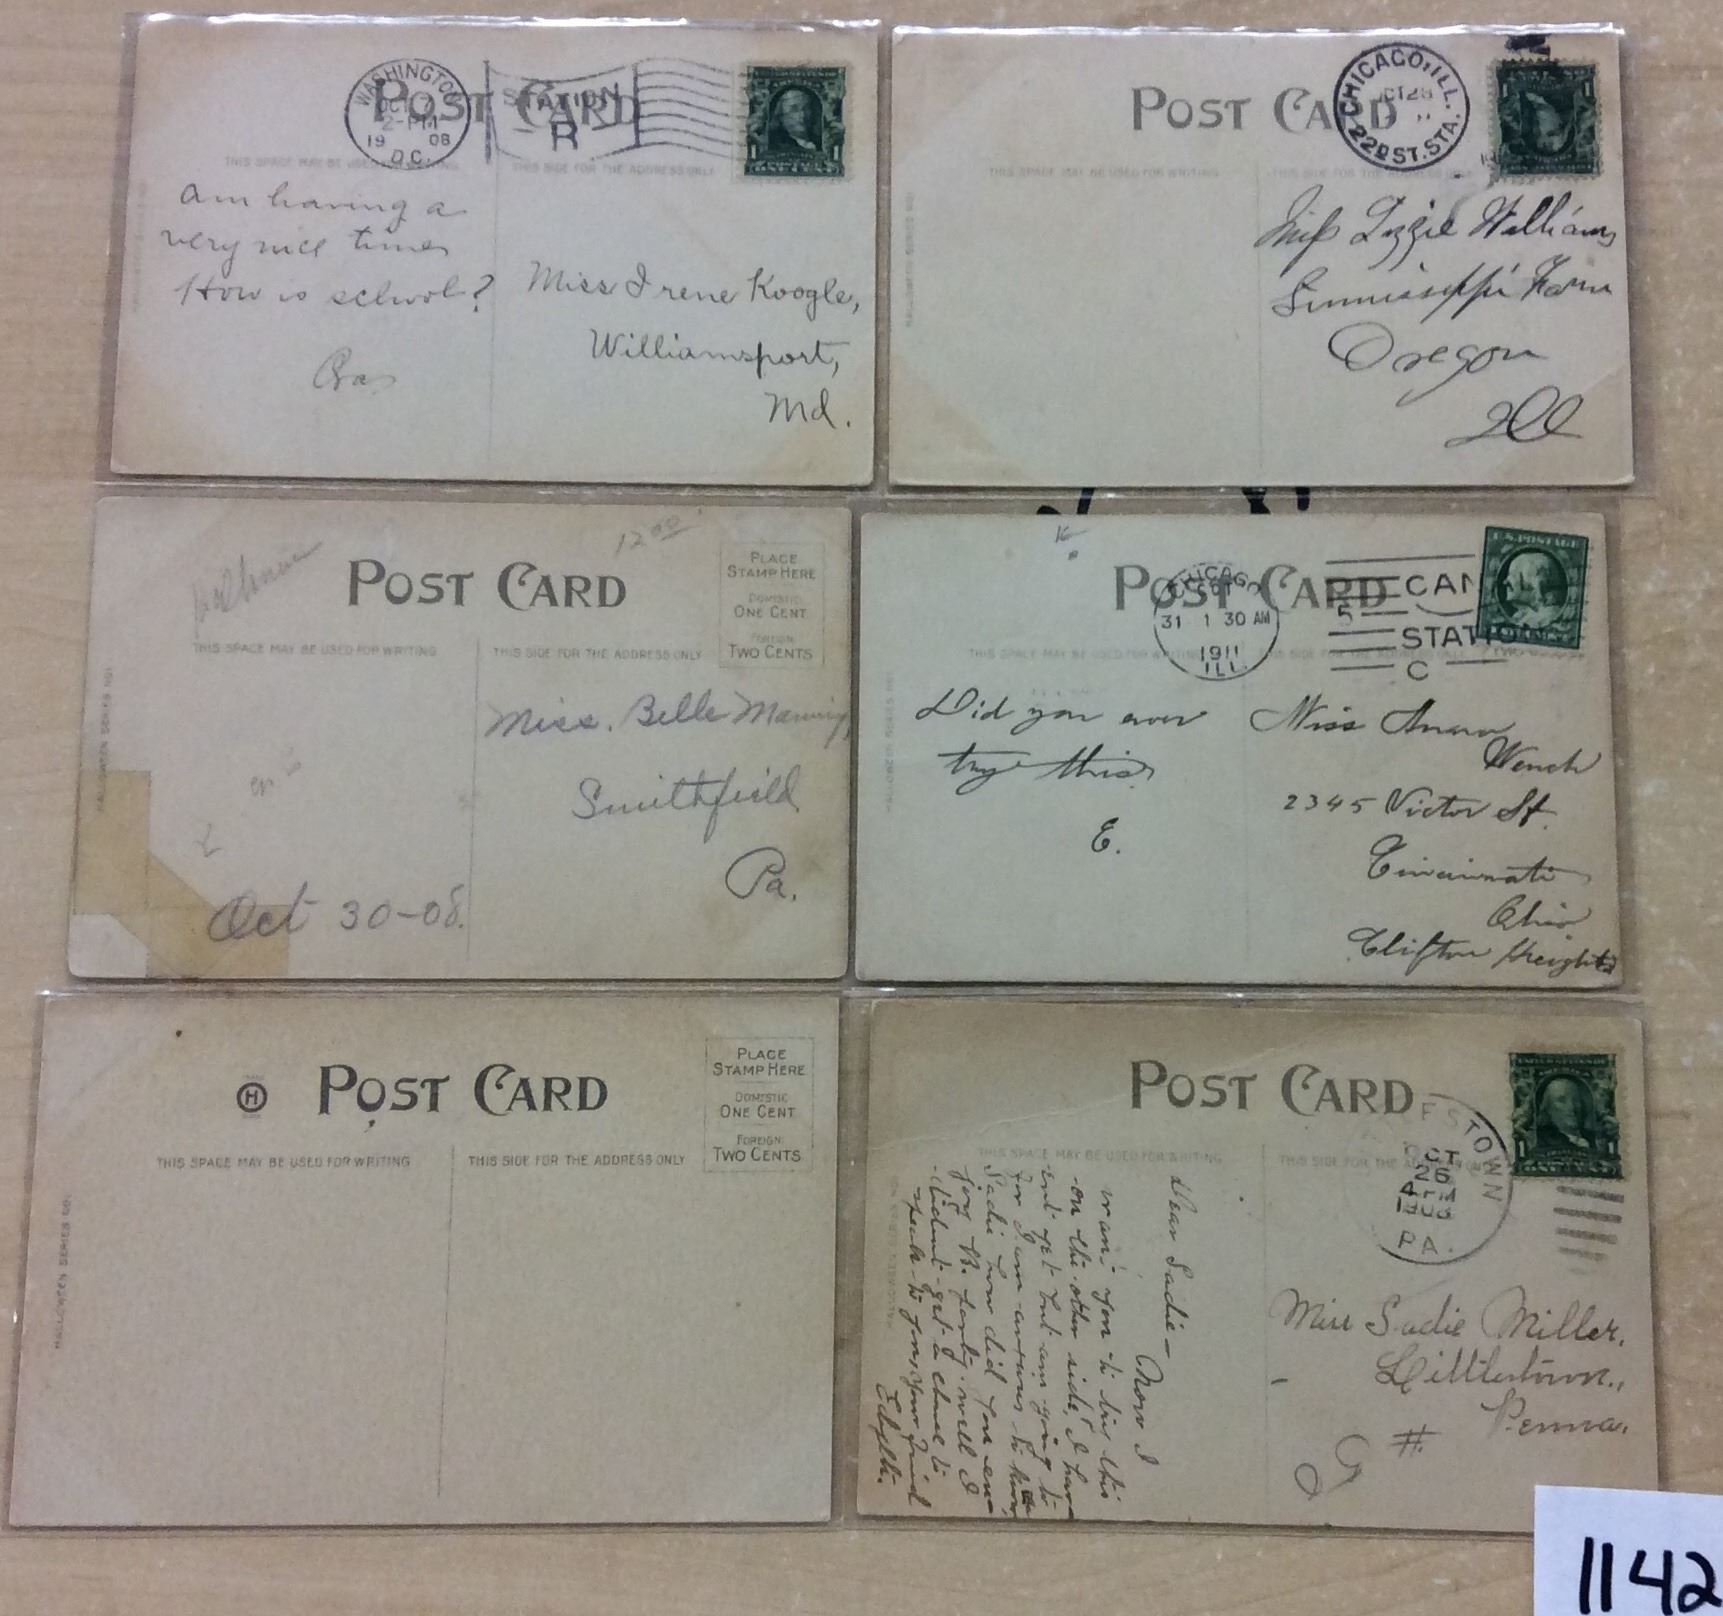 WASHINGTON
OCT 7
2-PM
19 08
D.C.
STATION
R
POST CARD
THIS SPACE MAY BE USED FOR WRITING
THIS SIDE FOR THE ADDRESS ONLY
Am having a
very nice time
How is school?
Miss Irene Koogle,
Williamsport,
Md.
POST CARD
CHICAGO, ILL.
22D ST. STA.
THIS SPACE MAY BE USED FOR WRITING
THIS SIDE FOR THE ADDRESS ONLY
Miss Lizzie Williams
Sinnissippi Farm
Oregon
Ill
12 00
POST CARD
PLACE
STAMP HERE
DOMESTIC
ONE CENT
FOREIGN
TWO CENTS
THIS SPACE MAY BE USED FOR WRITING
THIS SIDE FOR THE ADDRESS ONLY
HALLOWEEN SERIES NO.
Miss. Belle Manning,
Smithfield
Pa.
Oct 30-08.
POST CARD
CHICAGO
OCT
31 1 30 AM
1911
ILL.
CAN
STATION
C
U.S. POSTAGE
THIS SPACE MAY BE USED FOR WRITING
Did you ever
try this
E.
Miss Anna
Wench
2345 Victor St.
Cincinnati
Ohio
Clifton Heights
H POST CARD
PLACE
STAMP HERE
DOMESTIC
ONE CENT
FOREIGN
TWO CENTS
THIS SPACE MAY BE USED FOR WRITING
THIS SIDE FOR THE ADDRESS ONLY
HALLOWEEN SERIES NO.
POST CARD
ESTOWN
OCT
26
4 PM
1908
PA.
THIS SPACE MAY BE USED FOR WRITING
Dear Sadie—
Now I
want you to try this
on the other side, I have
ent yet but am going to
for I am anxious to know
Sadie how did you en-
joy the party. well I
didnt get a chance to
speak to you, Your friend
Edyth.
Miss Sadie Miller.
Littlestown.,
Penna.
#
1142